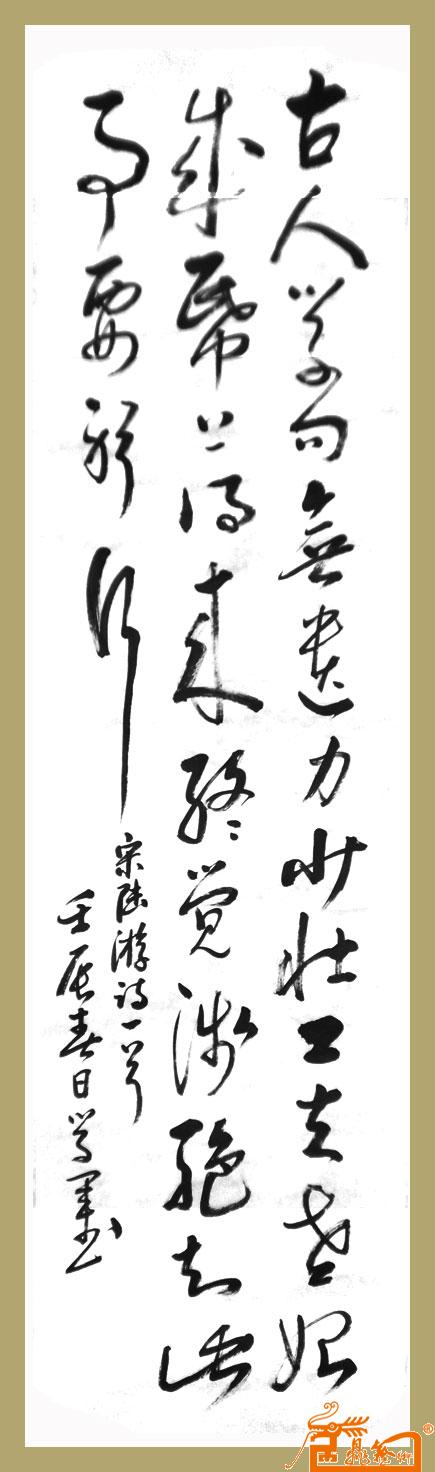 古人学问無遗力少壮工夫老始
成帋上得来终觉浅绝知此
事要躬行
宋陆游诗一首
壬辰春日学军书